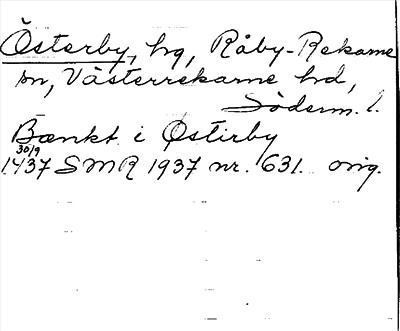 Österby, hg, Råby-Rekarne
sn, Västerrekarne hd,
Söderm. l.
Bænkt i Østirby
30/9
1437 SMR 1937 nr. 631. orig.